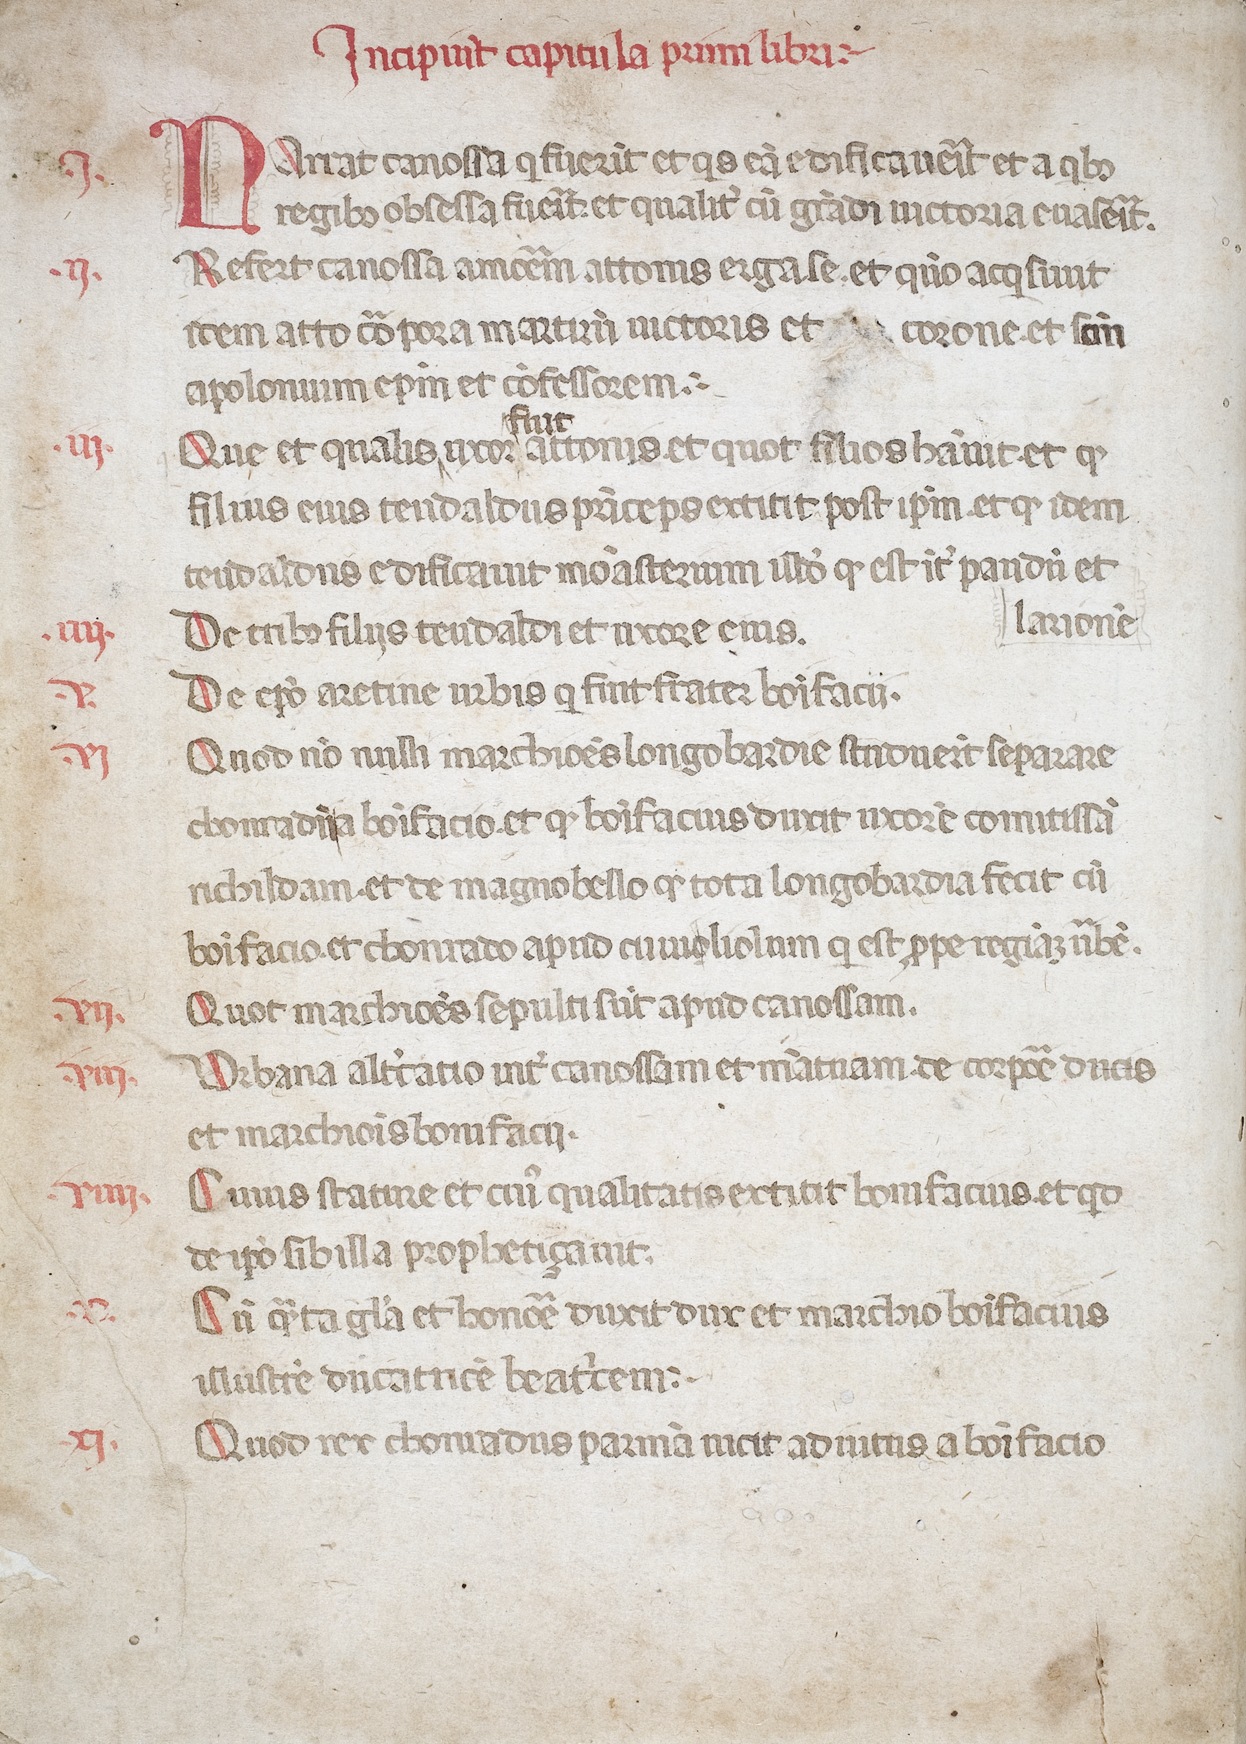 Incipiūt capitula primi libri:~
.I. NArrat canossa q̇ fuerīt et q̇s eā edificauer̄t et a qbꝫ
regibꝫ obsessa fuer̄t. et qualit̓ cū grādi uictoria euaser̄t.
.II. Refert canossa amoēm attonis erga se. et quō acq̇siuit
item atto corpora martirū uictoris et corone. et scm̄
apolonium epm̄ et cōfessorem:~
.III. Que et qualis uxor fuit attonis. et quot filios hāuit. et ꝙ
filius eius teudaldus prīceps extitit post ipm̄. et ꝙ idem
teudaldus edificauit mōasterium illō ꝙ est īt̓ pandū et
larionē
.IIII. De tribꝫ filijs teudaldi et uxore eius.
.V. De epō aretine urbis q̇ fuit frater boīfacii.
.VI Quod nō nulli marchioēs longobardie studuerīt separare
chonradū a boīfacio. et ꝙ boīfacius duxit uxorē comitissā
richildam. et de magno bello ꝙ tota longobardia fecit cū
boīfacio. et chonrado apud cuuioliolum q̇ est ꝓpe regiāꝫ ūbē.
.VII. Quot marchioēs sepulti sūt apud canossam.
.VIII. Vrbana alt̓catio int̓ canossam et mātuam. de corpōe ducis
et marchiōis bonifacij.
.VIIII. Cuius stature et cui̓ qualitatis extitit bonifacius. et qd̓
de ipō sibilla prophetiçauit.
.X. Cū q̄ta gl̄a et honoē duxit dux et marchio boīfacius
illustrē ducatricē beat̓cem:~
.XI. Quod rex chonradus parmā uicit adiutus a boīfacio